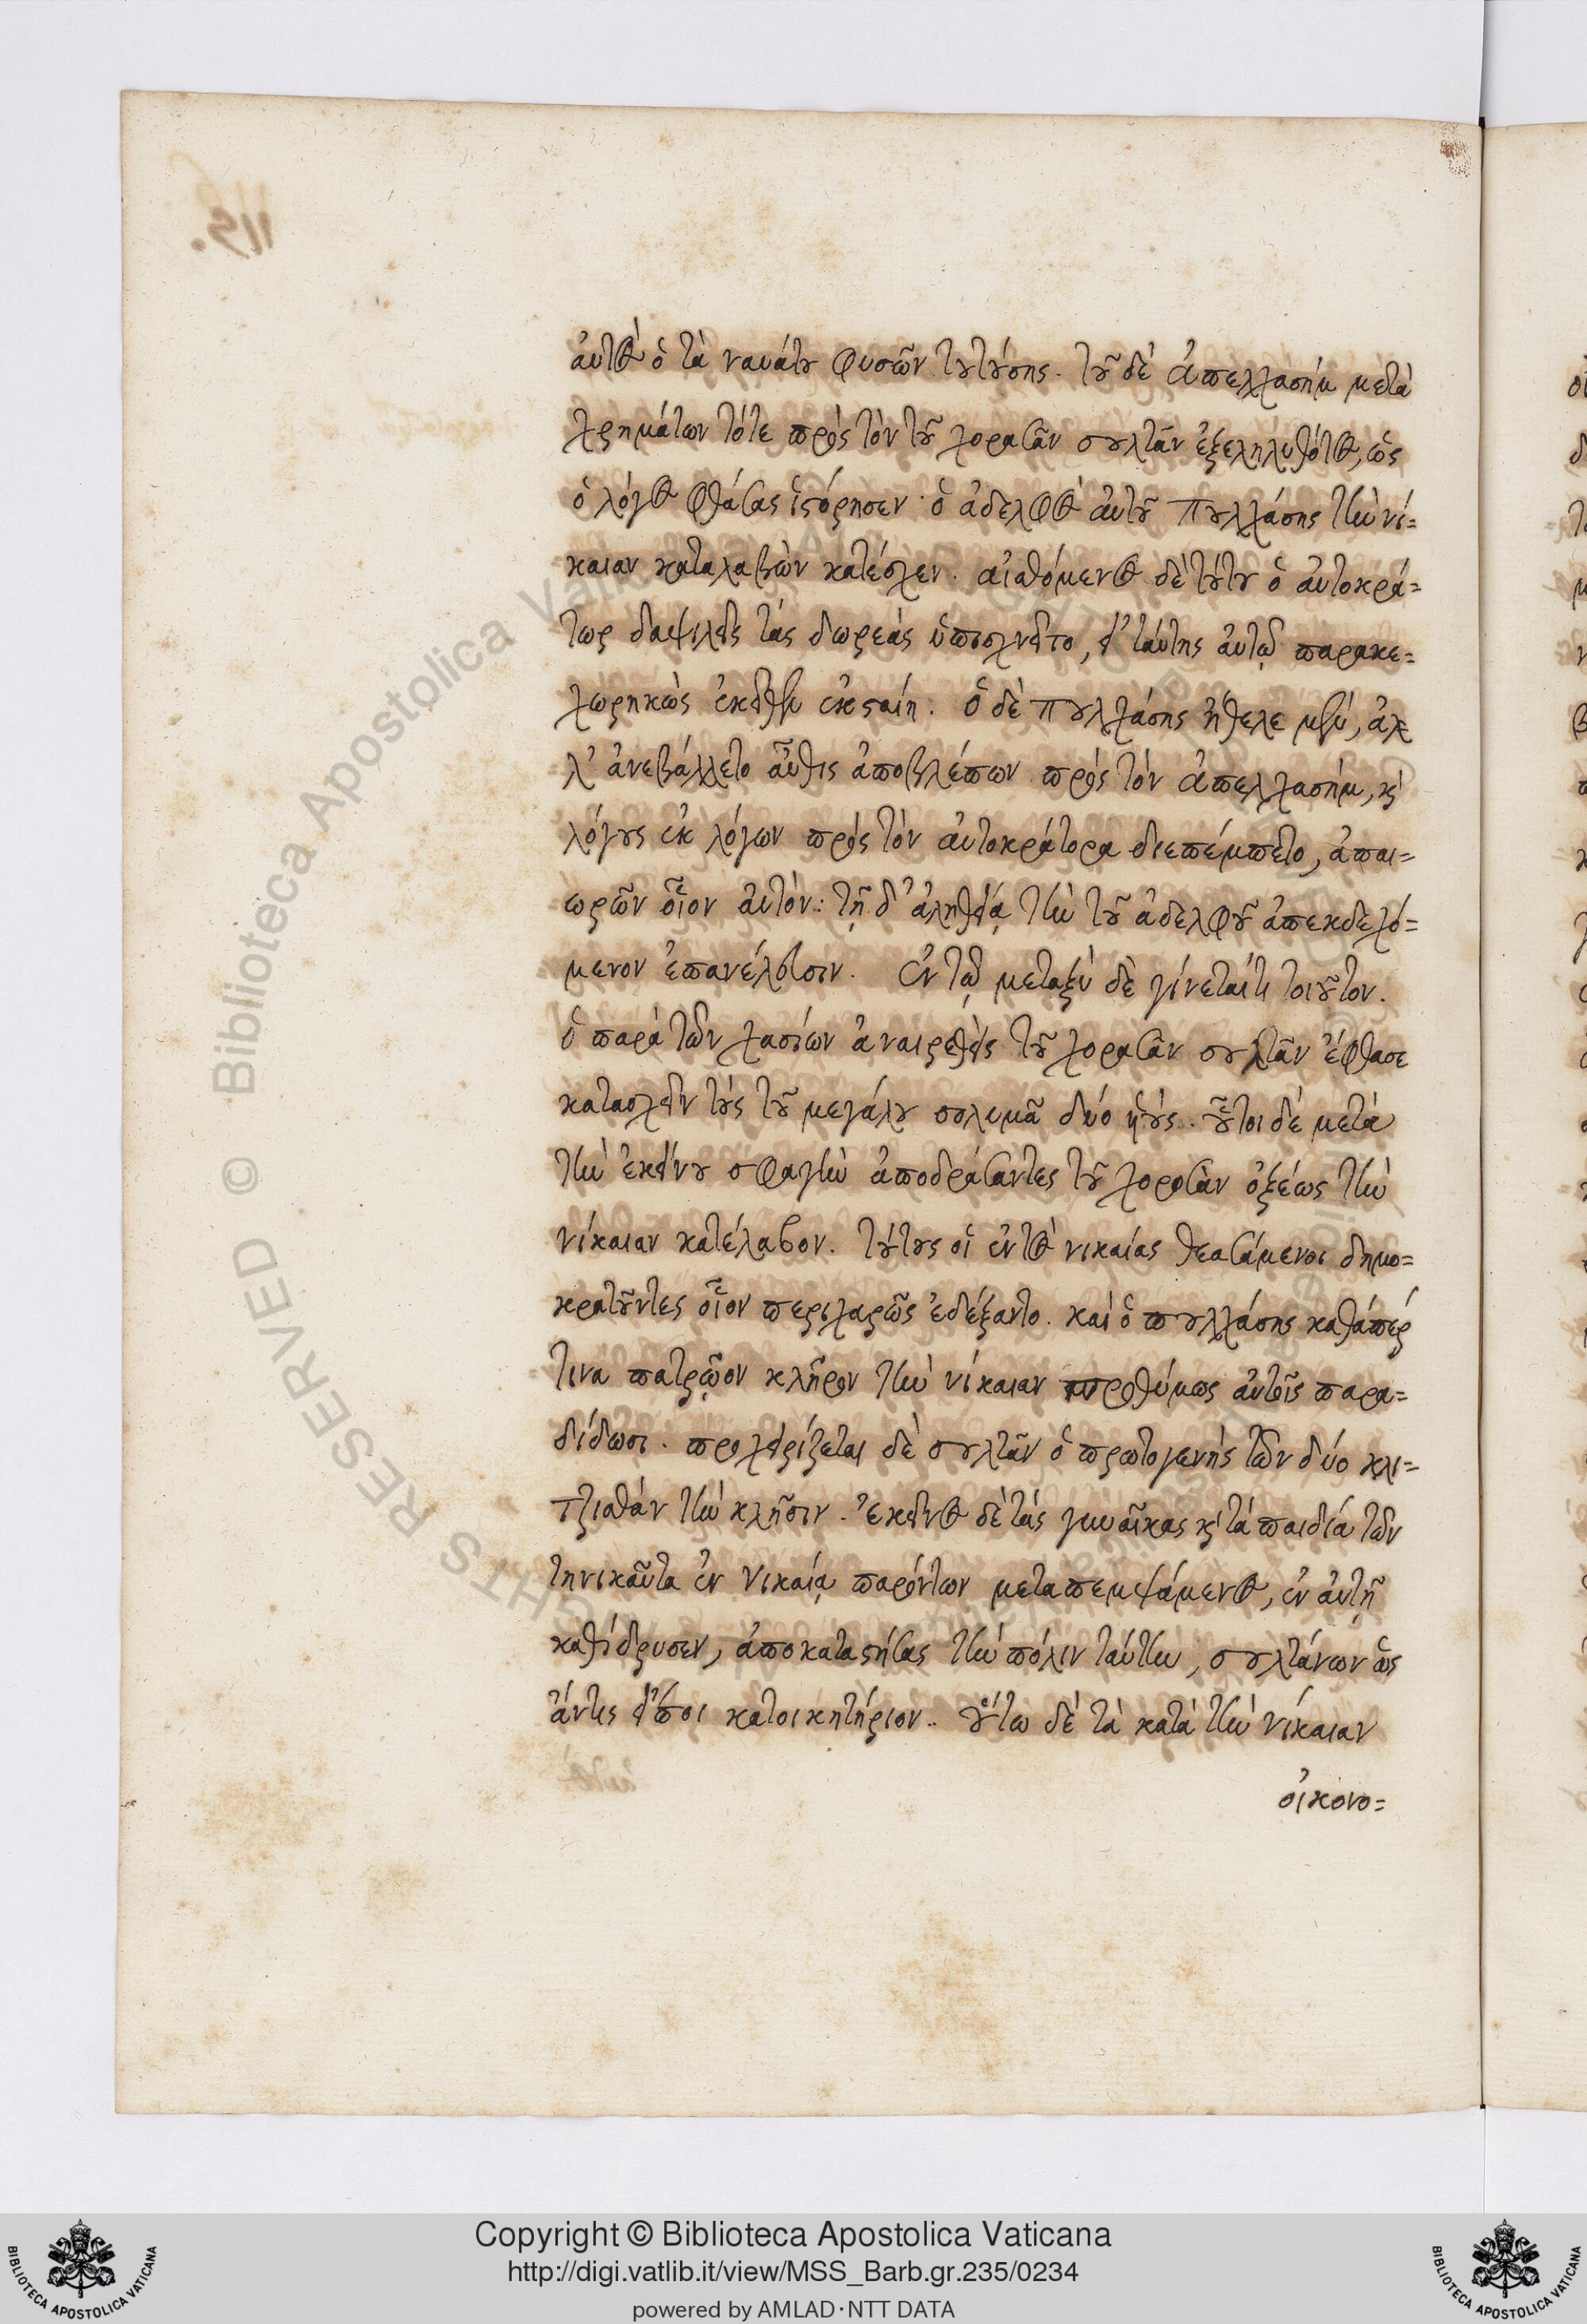 αὐτὸς ὁ τὰ ναυάτου φυσῶν τουτούσης. τοῦ δὲ ἀπελχασὴμ μετὰ
χρημάτων τότε πρὸς τὸν τοῦ χοροσὰν σουλτᾶν ἐξεληλυθότος, ὡς
ὁ λόγος φθάσας ἱστόρησεν· ὁ ἀδελφὸς αὐτοῦ πουλχάσης τὴν νί=
καιαν καταλαβὼν κατέσχεν. αἰσθόμενος δὲ τούτου ὁ αὐτοκρά=
τωρ δαψιλεῖς τὰς δωρεὰς ὑπισχνεῖτο, εἰ ταύτης αὐτῷ παρακε=
χωρηκὼς ἐκεῖθεν ἐκσταίη. ὁ δὲ πουλχάσης ἤθελε μὲν, ἀλ
λ' ἀνεβάλλετο αὖθις ἀποβλέπων πρὸς τὸν ἀπελχασὴμ, καὶ
λόγους ἐκ λόγων πρὸς τὸν αὐτοκράτορα διεπέμπετο, ἀπαι=
ωρῶν οἷον αὐτόν: τῇ δ' ἀληθείᾳ τὴν τοῦ ἀδελφοῦ ἀπεκδεχό=
μενον ἐπανέλευσιν. ἐν τῷ μεταξὺ δὲ γίνεταί τι τοιοῦτον.
ὁ παρὰ τῶν χασίων ἀναιρεθεὶς τοῦ χοροσὰν σουλτᾶν ἔφθασε
κατασχεῖν τοὺς τοῦ μεγάλου σολυμᾶ δύο υἱούς. οὗτοι δὲ μετὰ
τὴν ἐκείνου σφαγὴν ἀποδράσαντες τοῦ χοροσὰν ὀξέως τὴν
νίκαιαν κατέλαβον. τούτους οἱ ἐντὸς νικαίας θεασάμενοι δημο=
κρατοῦντες οἷον περιχαρῶς ἐδέξαντο. καὶ ὁ πουλχάσης καθάπερ
τινα πατρῷον κλῆρον τὴν νίκαιαν προθύμως αὐτοῖς παρα=
δίδωσι. προχειρίζεται δὲ σουλτᾶν ὁ πρωτογενὴς τῶν δύο κλι=
τζιασθὰν τὴν κλῆσιν. ἐκεῖνος δὲ τὰς γυναῖκας καὶ τὰ παιδία τῶν
τηνικαῦτα ἐν νικαίᾳ παρόντων μεταπεμψάμενος, ἐν αὐτῇ
καθίδρυσεν, ἀποκαταστήσας τὴν πόλιν ταύτην, σουλτάνων ὡς
ἄν τις εἴποι κατοικητήριον. οὕτω δὲ τὰ κατὰ τὴν νίκαιαν
οἰκονο=
Copyright © Biblioteca Apostolica Vaticana
http://digi.vatlib.it/view/MSS_Barb.gr.235/0234
powered by AMLAD·NTT DATA